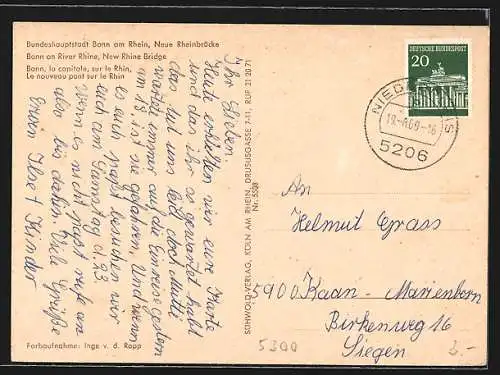 Bundeshauptstadt Bonn am Rhein, Neue Rheinbrücke
Bonn on River Rhine, New Rhine Bridge
Bonn, la capitale, sur le Rhin,
Le nouveau pont sur le Rhin
Ihr Lieben.
Heute erhielten wir eure Karte
und das ihr so gewartet habt
das tut uns leid doch Mutti
wartet immer auf die Einreise gestern
am 18. ist sie gefahren. Und wenn
es euch passt besuchen wir
euch am Samstag d. 23.
wenn es nicht passt ruft an
also bis dahin Viele Grüße
Eure Ilse + Kinder
Farbaufnahme: Inge v. d. Ropp
SÜHWOLD-VERLAG, KÖLN AM RHEIN, DRUSUSGASSE 7-11, RUF 21 20 71
Nr. 5508
DEUTSCHE BUNDESPOST
20
5206
An
Helmut Grass
5900 Kaan-Marienborn
Birkenweg 16
Siegen
5300